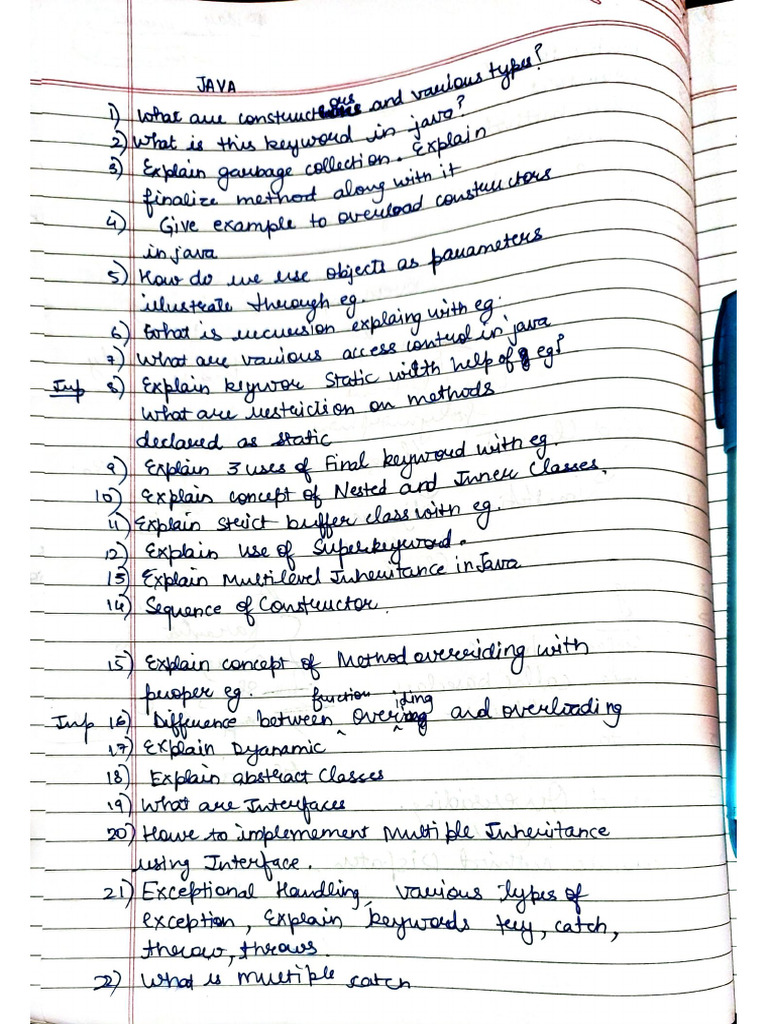 JAVA
1) What are constructors and various types?
2) What is this keyword in java?
3) Explain garbage collection. Explain
finalize method along with it
4) Give example to overload constructors
in java
5) How do we use objects as parameters
illustrate through eg.
6) What is recursion explaing with eg.
7) What are various access control in java
Imp 8) Explain keywor Static with help of eg?
What are restriction on methods
declared as static
9) Explain 3 uses of Final keyword with eg.
10) Explain concept of Nested and Inner Classes.
11) Explain strict buffer class with eg.
12) Explain use of Super keyword.
13) Explain Multilevel Inheritance in Java
14) Sequence of Constructor.
15) Explain concept of Method overriding with
proper eg.
Imp 16) Difference between function overiding and overloading
17) Explain Dyanamic
18) Explain abstract Classes
19) What are Interfaces
20) Howe to implemement Multiple Inheritance
using Interface.
21) Exceptional Handling, various Types of
exception, Explain keywords try, catch,
throw, throws.
22) What is multiple catch